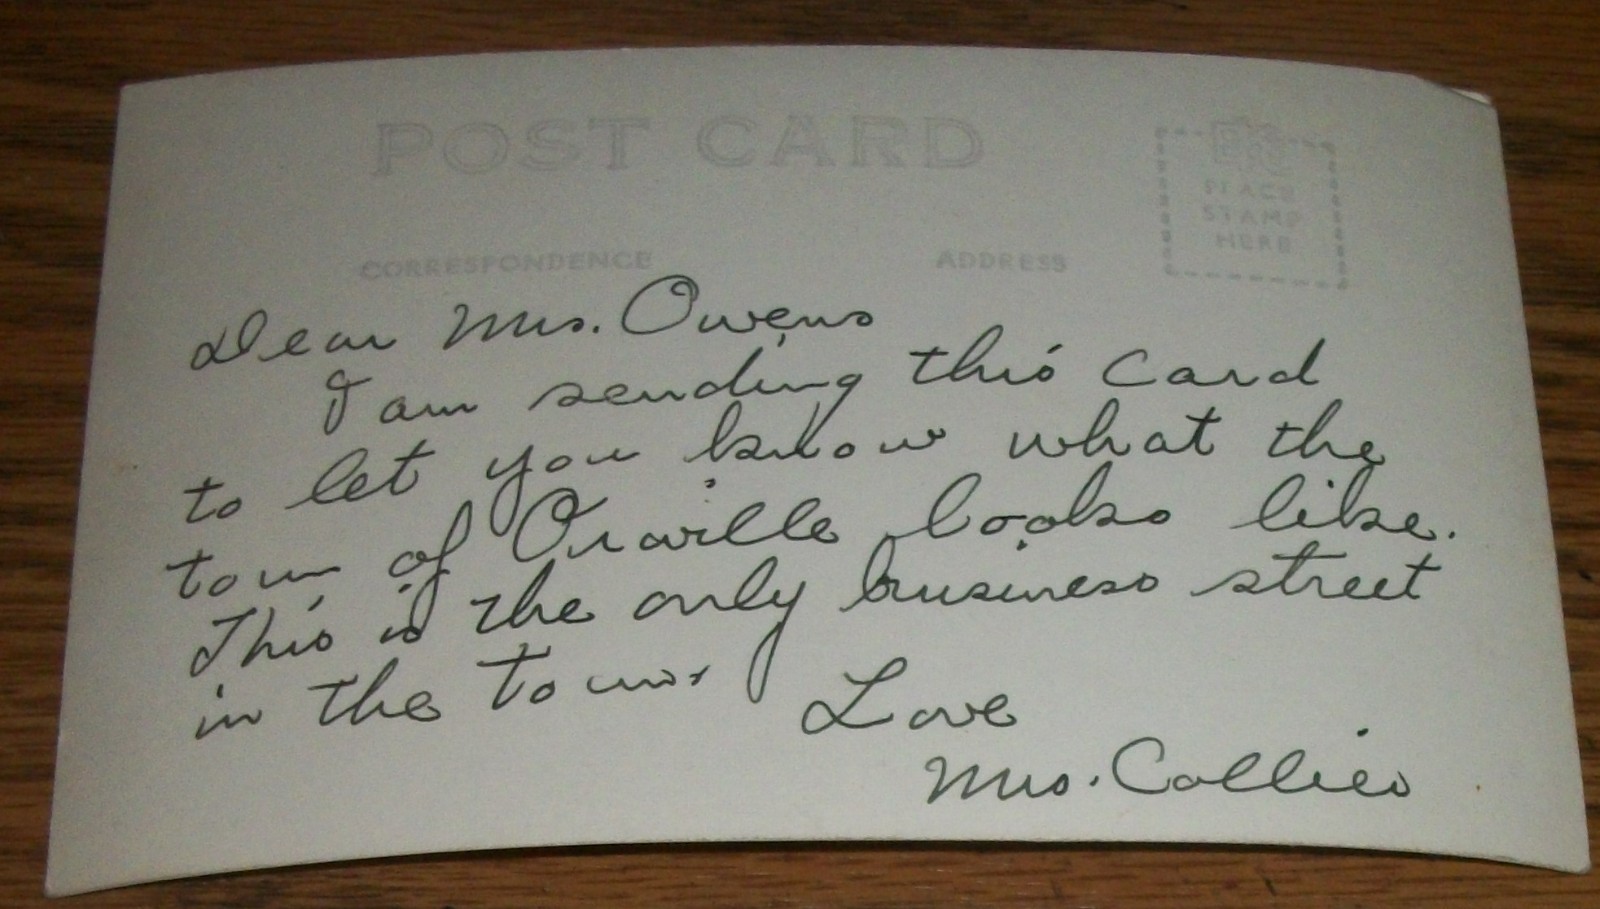 POST CARD
EKC
PLACE
STAMP
HERE
CORRESPONDENCE ADDRESS
Dear Mrs. Owens
I am sending this card
to let you know what the
town of Orville looks like.
This is the only business street
in the town.
Love
Mrs. Collier